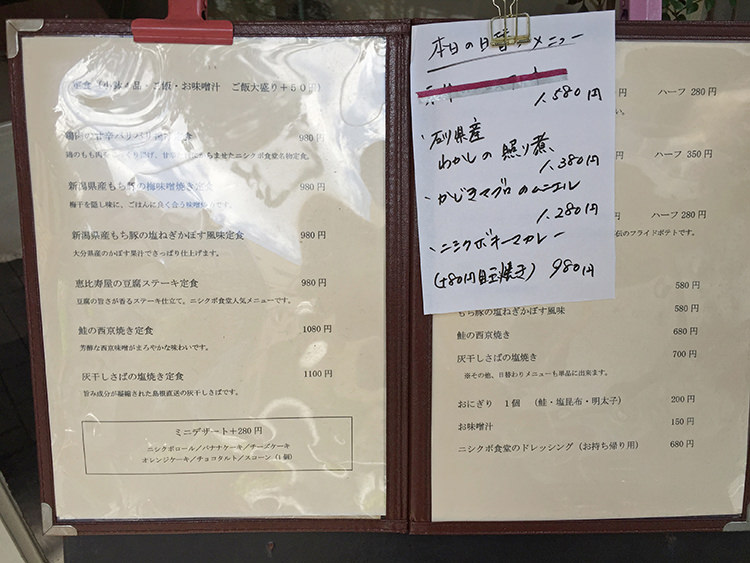 定食（小鉢2品・ご飯・お味噌汁　ご飯大盛り+５０円）
980円
鶏のもも肉を
ませたニシクボ食堂名物定食。
新潟県産もち豚の梅味噌焼き定食 980円
梅干を隠し味に、ごはんに良く合う味噌
新潟県産もち豚の塩ねぎかぼす風味定食 980円
大分県産のかぼす果汁でさっぱり仕上げます。
恵比寿屋の豆腐ステーキ定食 980円
豆腐の旨さが香るステーキ仕立て、ニシクボ食堂人気メニューです。
鮭の西京焼き定食 1080円
芳醇な西京味噌がまろやかな味わいです。
灰干しさばの塩焼き定食 1100円
旨み成分が凝縮された島根直送の灰干しさばです。
ミニデザート+280円
ニシクボロール／バナナケーキ／チーズケーキ
オレンジケーキ／チョコタルト／スコーン（1個）
本日の日替りメニュー
1,580円
・石川県産
わかしの照り煮
1,380円
・かじきマグロのムニエル
1,280円
・ニシクボキーマカレー
(+80円目玉焼き) 980円
ハーフ 280円
ハーフ 350円
ハーフ 280円
のフライドポテトです。
580円
もち豚の塩ねぎかぼす風味 580円
鮭の西京焼き 680円
灰干しさばの塩焼き 700円
※その他、日替わりメニューも単品に出来ます。
おにぎり １個 （鮭・塩昆布・明太子） 200円
お味噌汁 150円
ニシクボ食堂のドレッシング（お持ち帰り用） 680円